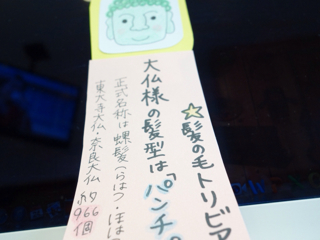 ☆髪のモトリビア
大仏様の髪型は「パンチ
正式名称は螺髪(らはつ・ほは
東大寺大仏・奈良大仏 約966個